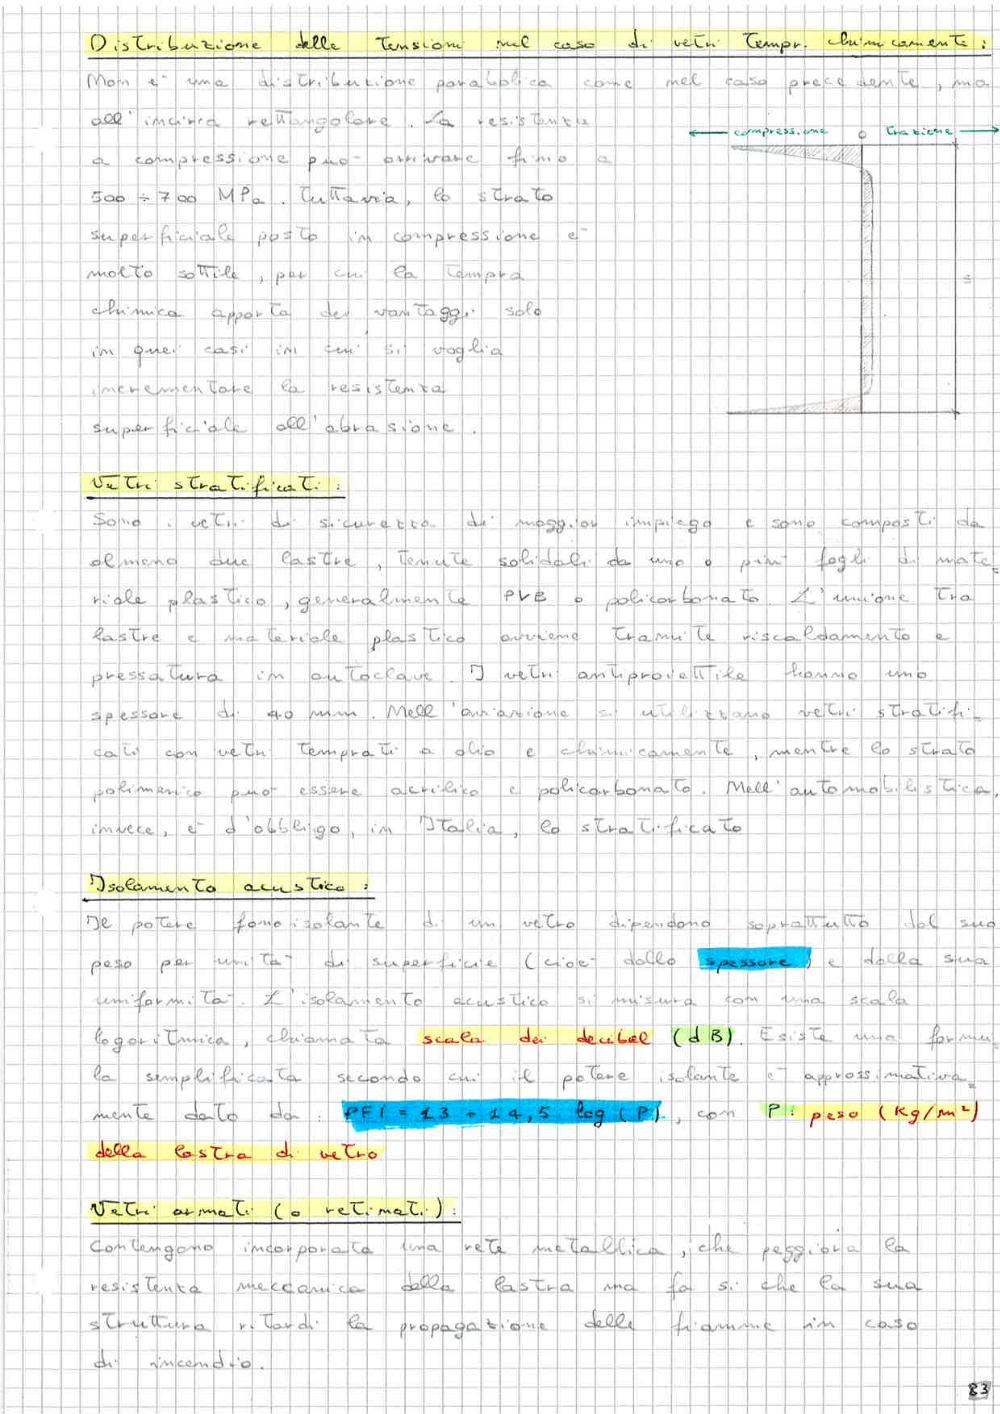 Distribuzione delle tensioni nel caso di vetri tempr. chimicamente:
Non è una distribuzione parabolica come nel caso precedente, ma
all'incirca rettangolare. La resistenza
a compressione può arrivare fino a
500 ÷ 700 MPa. Tuttavia, lo strato
superficiale posto in compressione è
molto sottile, per cui la tempra
chimica apporta dei vantaggi solo
in quei casi in cui si voglia
incrementare la resistenza
superficiale all'abrasione.
compressione 0 trazione
s
Vetri stratificati:
Sono i vetri di sicurezza di maggior impiego e sono composti da
almeno due lastre, tenute solidali da uno o più fogli di mate=
riale plastico, generalmente PVB o policarbonato. L'unione tra
lastre e materiale plastico avviene tramite riscaldamento e
pressatura in autoclave. I vetri antiproiettile hanno uno
spessore di 40 mm. Nell'aviazione si utilizzano vetri stratifi=
cati con vetri temprati a olio e chimicamente, mentre lo strato
polimerico può essere acrilico e policarbonato. Nell'automobilistica,
invece, è d'obbligo, in Italia, lo stratificato
Isolamento acustico:
Il potere fonoisolante di un vetro dipendono soprattutto dal suo
peso per unità di superficie (cioè dallo spessore) e dalla sua
uniformità. L'isolamento acustico si misura con una scala
logaritmica, chiamata scala dei decibel (dB). Esiste una formu=
la semplificata secondo cui il potere isolante è approssimativa=
mente dato da: PFI = 13 + 14,5 log (P), con P: peso (Kg/m²)
della lastra di vetro
Vetri armati (o retinati):
Contengono incorporata una rete metallica, che peggiora la
resistenza meccanica della lastra ma fa si che la sua
struttura ritardi la propagazione delle fiamme in caso
di incendio.
83